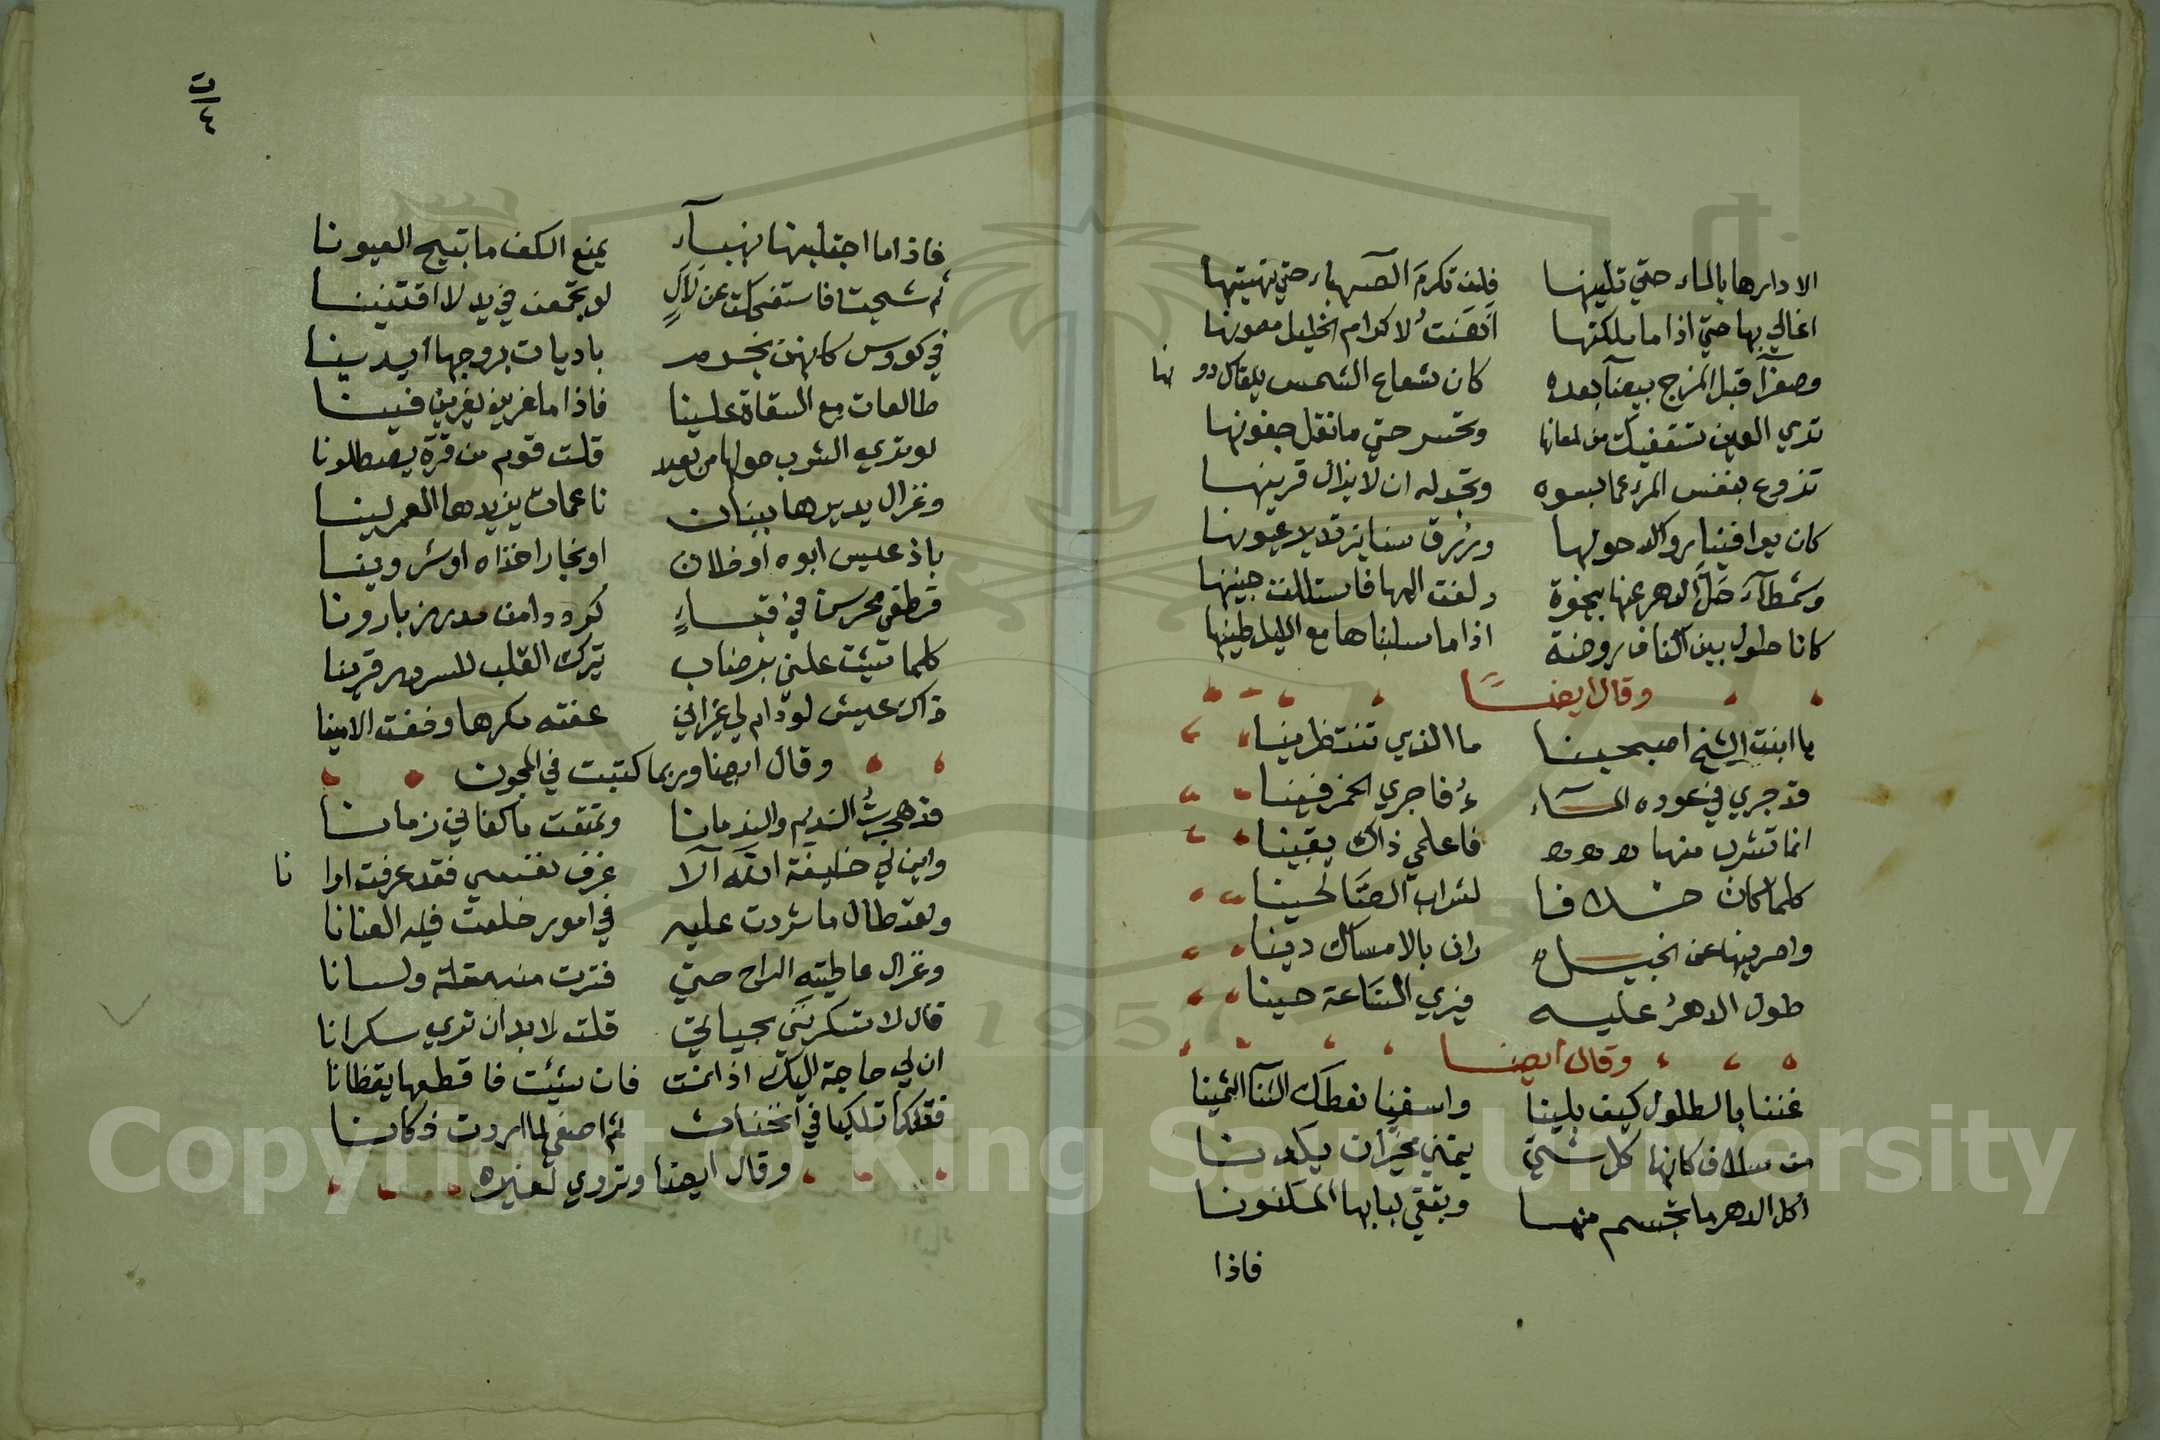 الا دارها بالماء حتي تلينها فلن تكرم الصهباء حتي تهينها
اغالي بها حتي اذا ما ملكتها اهنت لاكرام الخليل مصونها
وصفرآ قبل المزج بيضآ بعده كان شعاع الشمس يلقاك دو نها
تري العين تستعفيك من لمعانها وتحسر حتي ما تقل جفونها
تزوع بنفس المرء عما يسوه وتجدله ان لا يزال قرينها
كان يواقيتا رواكد حولها وزرق سنانير تدير عيونها
وشمطآء حل الدهر عنها بنجوة دلفت اليها فاستللت جنينها
كانا حلول بين اكناف روضة اذا ما سلبناها مع الليل طينها
وقال ايضا
يا ابنت الشيخ اصبحينا ما الذي تنتظرينا
قد جري في عوده المآء ء فاجري الخمر فينا
انما تشرب منها فاعلمي ذاك يقينا
كلما كان خلافا لشراب الصالحينا
واصرفيها عن بخيل دان بالامساك دينا
طول الدهر عليه فيري الساعة حينا
وقال ايضا
غننا بالطلول كيف بلينا واسقنا نعطك الثنآ الثمينا
من سلاف كانها كل شئي يتمني مخير ان يكونا
اكل الدهر ما تجسم منها وبقي لبابها المكنونا
فاذا
ت
٤
فاذا ما اجتليتها فهبآء يمنع الكف ما تبيح العيونا
ثم شجت فاستضحكت عن لآل لو تجمعن في يد لاقتنينا
في كووس كانهن نجوم باديات بروجها ايدينا
طالعات مع السقاة علينا فاذا ما غربن يغربن فينا
لو تري الشرب حولها من بعيد قلت قوم من قرة يصطلونا
وغزال يديرها ببنان ناعمات يزيدها الغمر لينا
كلما شئت علني برضاب يترك القلب للسرور قرينا
ذاك عيش لو دام لي غيراني عفته مكرها وخفت الامينا
وقال ايضا وربما كتبت في المجون
قد هجرت النديم والندمانا وتمتعت ما كفاني زمانا
وابن لي خليفة الله الا عزف نفسي فقد عرفت اوا نا
ولقد طال ما شردت عليه في امور خلعت فيه العنانا
وغزال عاطيته الراح حتي فترت منه مقلة ولسانا
قال لا تسكرنني بحياتي قلت لا بد ان تري سكرانا
ان لي حاجة اليك اذا نمت فان شئت فاقضها يقظانا
فتلكا تلكيا في انخناث ثم اصغي لما اردت فكانا
وقال ايضا وتروي لغيره
Copyright © King Saud University
1957